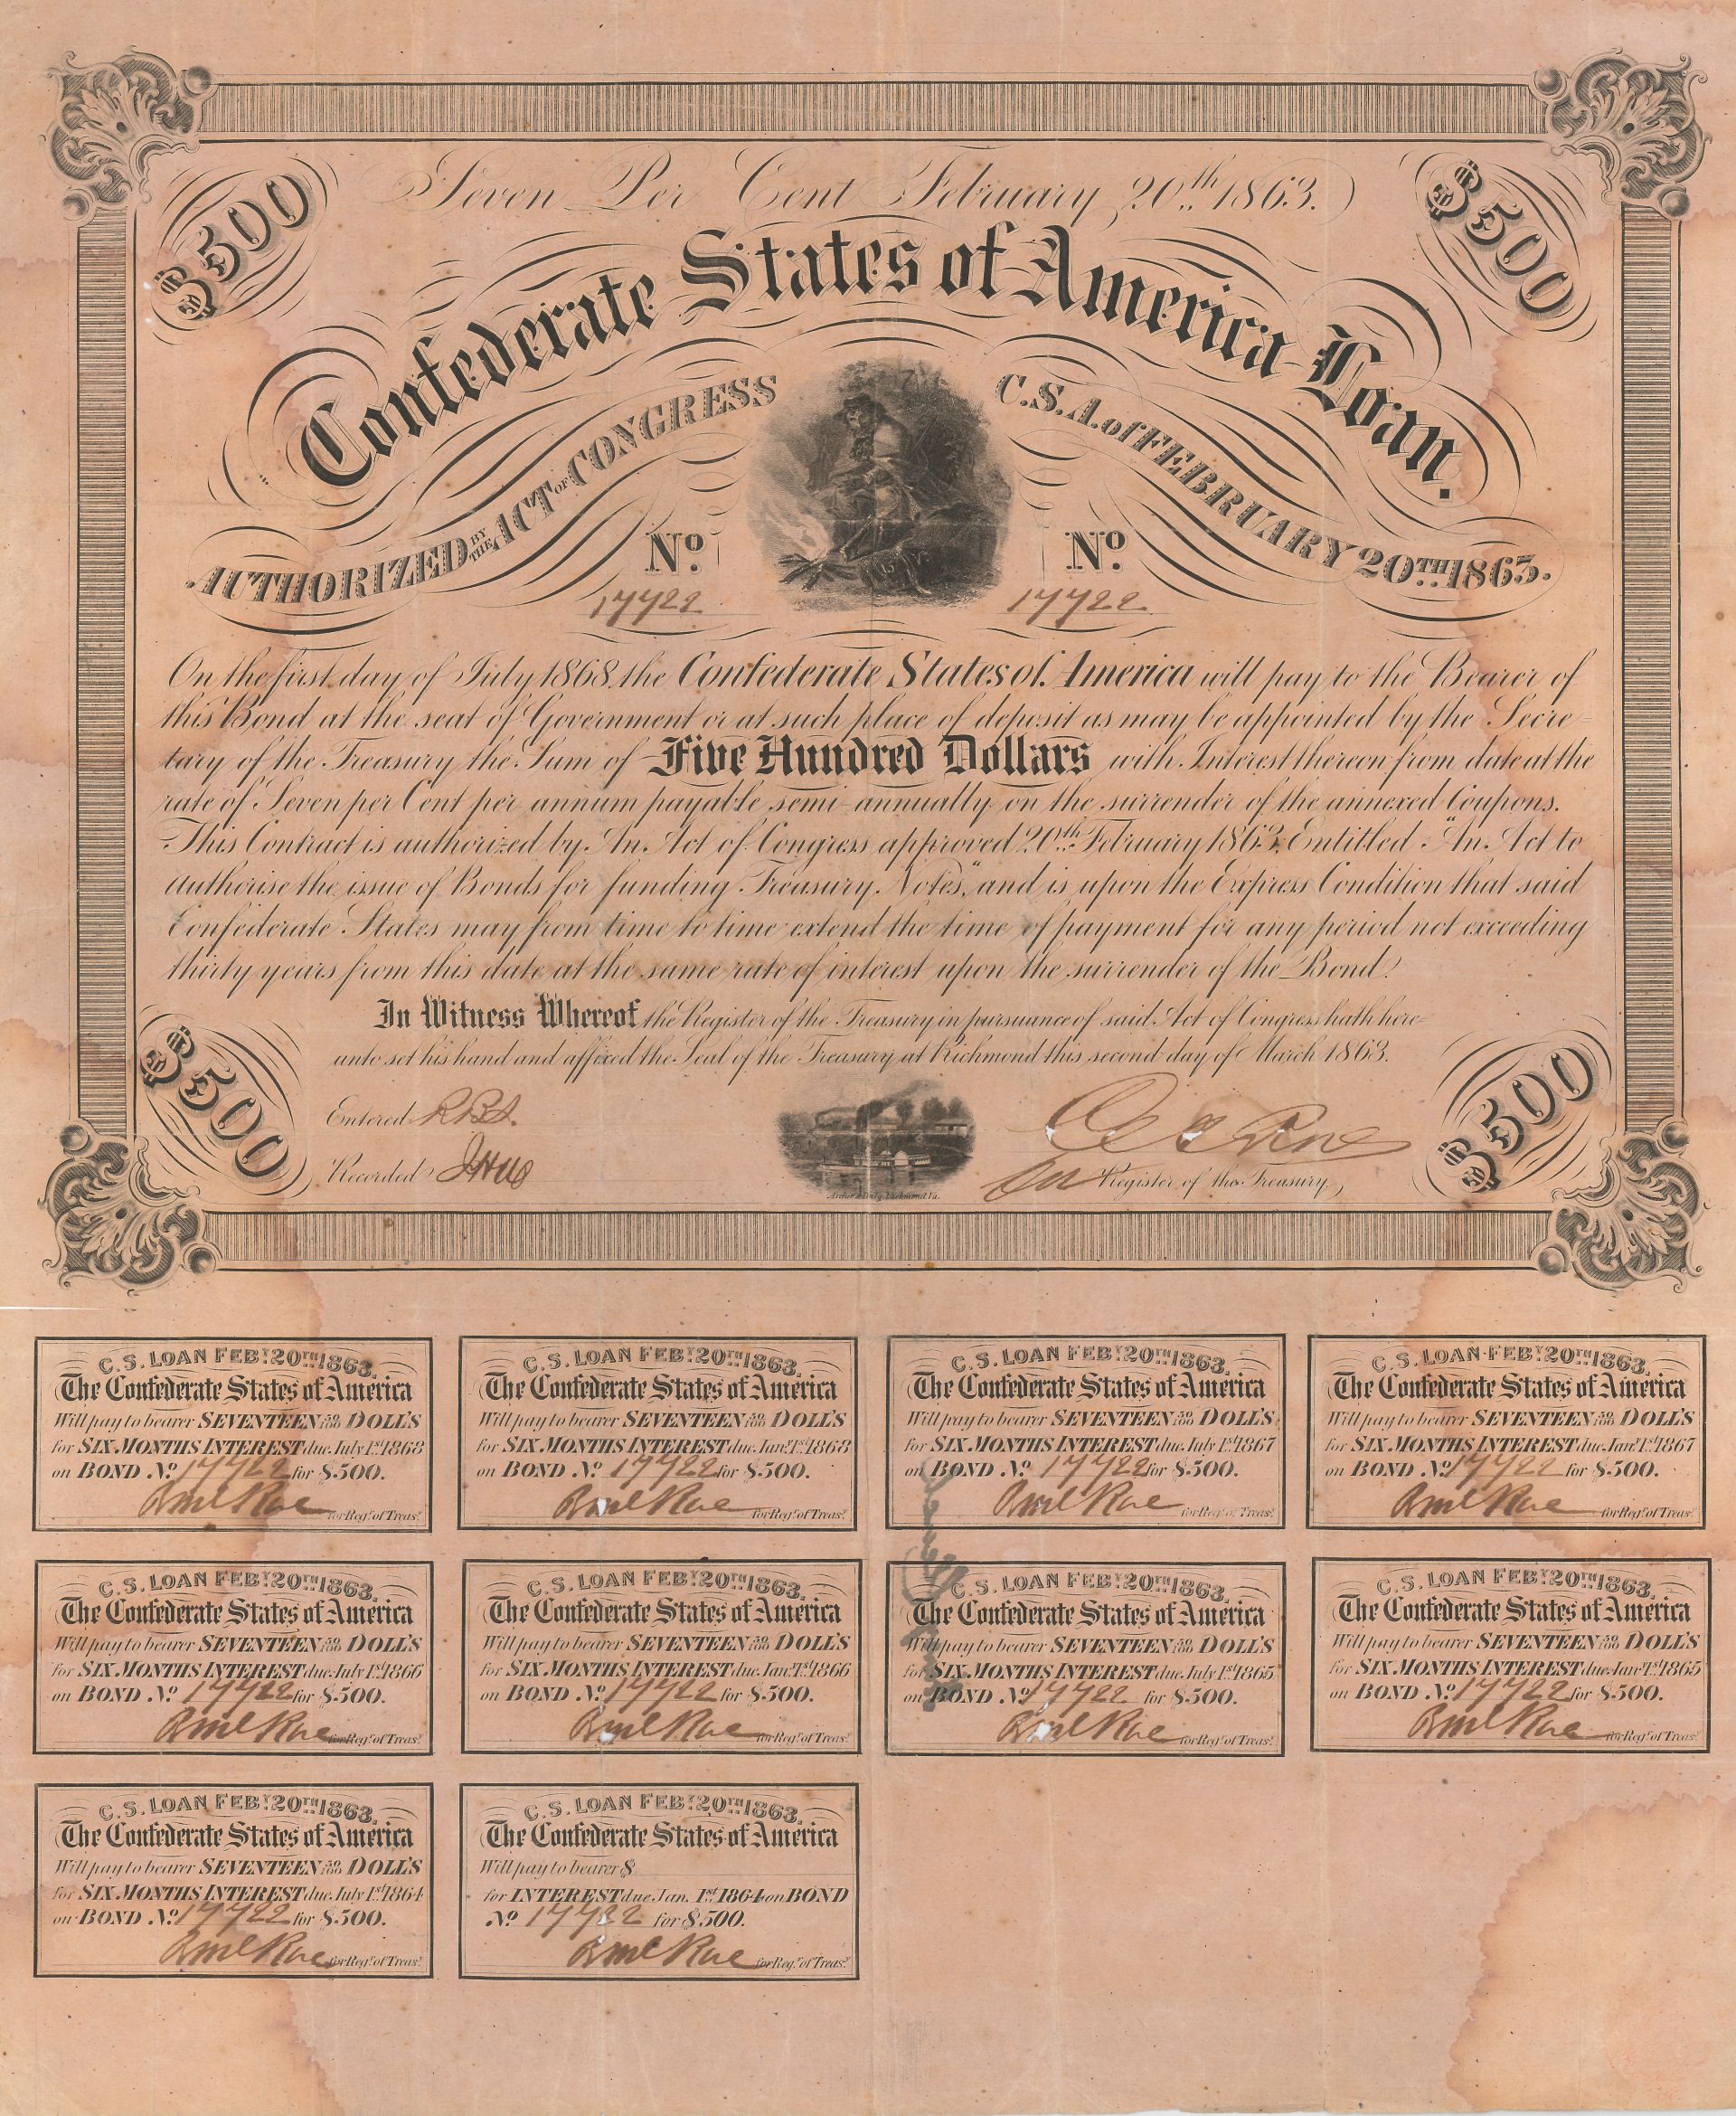 $500
Seven Per Cent February 20th 1863.
$500
Confederate States of America Loan.
AUTHORIZED BY THE ACT OF CONGRESS
C.S.A. of FEBRUARY 20TH 1863.
No.
No.
17722
17722
On the first day of July 1868, the Confederate States of America will pay to the Bearer of
this Bond at the seat of Government or at such place of deposit as may be appointed by the Secre-
tary of the Treasury the Sum of Five Hundred Dollars with Interest thereon from date at the
rate of Seven per Cent per annum payable semi-annually on the surrender of the annexed Coupons.
This Contract is authorized by An Act of Congress approved 20th February 1863, Entitled "An Act to
authorise the issue of Bonds for funding Treasury Notes," and is upon the Express Condition that said
Confederate States may from time to time extend the time of payment for any period not exceeding
thirty years from this date at the same rate of interest upon the surrender of the Bond.
In Witness Whereof the Register of the Treasury in pursuance of said Act of Congress hath here-
unto set his hand and affixed the Seal of the Treasury at Richmond this second day of March 1863.
$500
$500
Entered
Recorded
Register of the Treasury
Archer & Daly, Richmond Va.
C.S. LOAN FEBY 20TH 1863.
The Confederate States of America
Will pay to bearer SEVENTEEN 50/100 DOLL'S
for SIX MONTHS INTEREST due July 1st 1868
on BOND No. 17722 for $500.
for Regr. of Treasy.
C.S. LOAN FEBY 20TH 1863.
The Confederate States of America
Will pay to bearer SEVENTEEN 50/100 DOLL'S
for SIX MONTHS INTEREST due Jany. 1st 1868
on BOND No. 17722 for $500.
for Regr. of Treasy.
C.S. LOAN FEBY 20TH 1863.
The Confederate States of America
Will pay to bearer SEVENTEEN 50/100 DOLL'S
for SIX MONTHS INTEREST due July 1st 1867
on BOND No. 17722 for $500.
for Regr. of Treasy.
C.S. LOAN FEBY 20TH 1863.
The Confederate States of America
Will pay to bearer SEVENTEEN 50/100 DOLL'S
for SIX MONTHS INTEREST due Jany. 1st 1867
on BOND No. 17722 for $500.
for Regr. of Treasy.
C.S. LOAN FEBY 20TH 1863.
The Confederate States of America
Will pay to bearer SEVENTEEN 50/100 DOLL'S
for SIX MONTHS INTEREST due July 1st 1866
on BOND No. 17722 for $500.
for Regr. of Treasy.
C.S. LOAN FEBY 20TH 1863.
The Confederate States of America
Will pay to bearer SEVENTEEN 50/100 DOLL'S
for SIX MONTHS INTEREST due Jany. 1st 1866
on BOND No. 17722 for $500.
for Regr. of Treasy.
C.S. LOAN FEBY 20TH 1863.
The Confederate States of America
Will pay to bearer SEVENTEEN 50/100 DOLL'S
for SIX MONTHS INTEREST due July 1st 1865
on BOND No. 17722 for $500.
for Regr. of Treasy.
C.S. LOAN FEBY 20TH 1863.
The Confederate States of America
Will pay to bearer SEVENTEEN 50/100 DOLL'S
for SIX MONTHS INTEREST due Jany. 1st 1865
on BOND No. 17722 for $500.
for Regr. of Treasy.
C.S. LOAN FEBY 20TH 1863.
The Confederate States of America
Will pay to bearer SEVENTEEN 50/100 DOLL'S
for SIX MONTHS INTEREST due July 1st 1864
on BOND No. 17722 for $500.
for Regr. of Treasy.
C.S. LOAN FEBY 20TH 1863.
The Confederate States of America
Will pay to bearer $
for INTEREST due Jan. 1st 1864 on BOND
No. 17722 for $500.
for Regr. of Treasy.